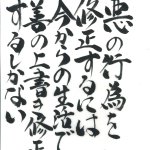 悪の行為を
修正するには
今からの生活で
善の上書き修正
するしかない